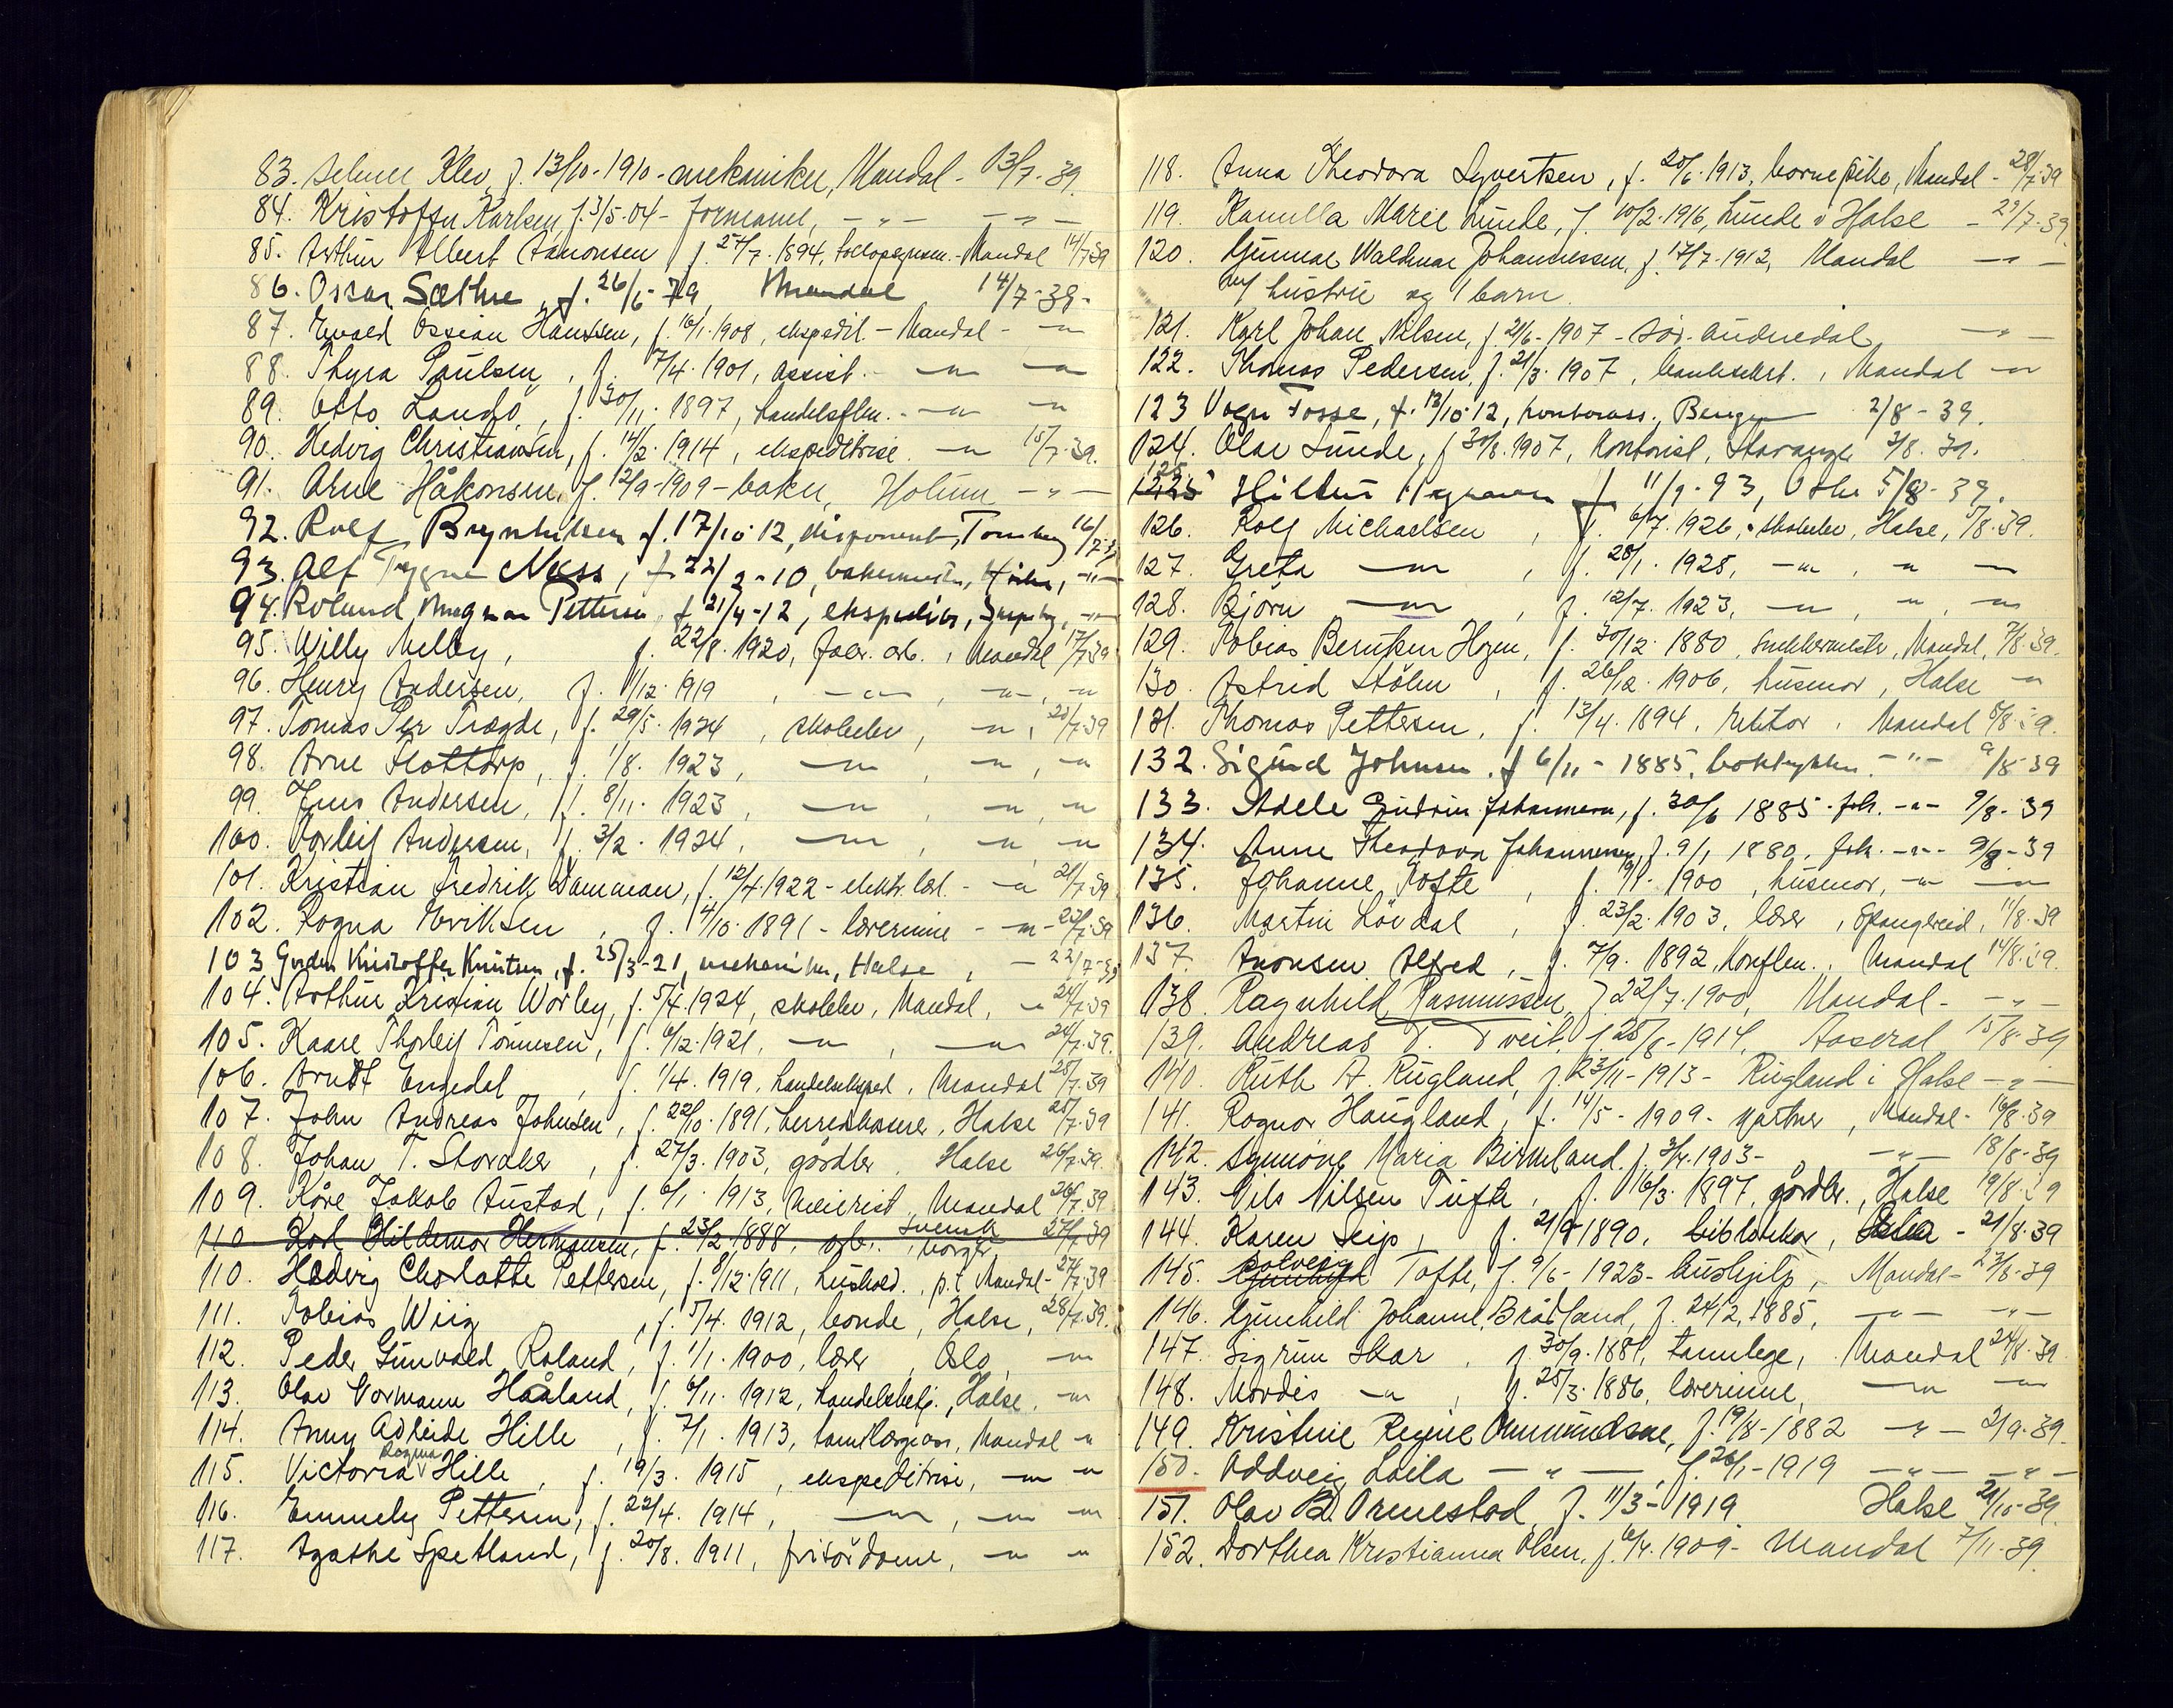 83. Selmer Klev, f. 13/10-1910 - mekaniker, Mandal - 13/7-39
84. Kristoffer Karlsen, f. 3/5-04 - formann, - " - - " -
85. Arthur Albert Aanonsen f. 27/7. 1894, tolloppsynsm. - Mandal 14/7-39
86. Oscar Sæthre, f. 26/6-79 Mandal 14/7-39-
87. Evald Ossian Hanssen, f. 16/1.1908, ekspedit. - Mandal - - " -
88. Thyra Paulsen, f. 7/4.1901, assist. - " - - " -
89. Otto Landø, f. 30/11. 1897, handelsflm. - " - - " -
90. Hedvig Christiansen, f. 14/2. 1914, ekspeditrise - " - 15/7-39.
91. Arne Håkonsen, f. 12/9-1909 - baker, Holum - " -
92. Rolf Brynhildsen f. 17/10-12, disponent, Tønsberg 16/7-39
93. Alf Trygve Næss, f. 22/2-10, bakermester, - " -
94. Roland Magnar Pettersen, f. 21/4-12, ekspeditør, - " -
95. Willy Melby, f. 22/8. 1920, fabr. arb., Mandal 17/7-39
96. Henry Andersen, f. 1/12 1919, - " -, - " -, - " -
97. Tomas Per Trægde, f. 29/5. 1924, skoleelev, - " -, 20/7-39
98. Arne Flottorp, f. 1/8. 1923, - " -, - " -, - " -
99. Jens Andersen, f. 8/11. 1923, - " -, - " -, - " -
100. Torleif Andersen, f. 3/2. 1924, - " -, - " - - " -
101. Kristian Fredrik Damman, f. 12/4.1922 - elektr. lærl. - - " - 21/7-39
102. Ragna Eriksen, f. 4/10. 1891 - lærerinne - - " - 22/7-39
103 Gorden Kristoffer Knutsen, f. 25/3-21, mekaniker, Halse, - 22/7-39
104. Arthur Kristian Worley, f. 5/4.1924, skoleelev, Mandal, - 24/7-39
105. Kaare Thorleif Tønnesen, f. 6/12.1921, - " -, - " - 24/7-39.
106. Arndt Engedal, f. 1/4. 1919, handelseksped., Mandal 25/7-39
107. John Andreas Johnsen, f. 22/10. 1891, herredskasserer, Halse 25/7-39
108. Johan T. Storaker, f. 27/3. 1903, gårdbr., Halse 26/7-39
109. Kåre Jakob Austad, f. 6/1. 1913, meierist, Mandal 26/7-39
110. Karl Hildemar Hermansen, f. 23/2 1888, arb., svensk borger, 27/7-39
110. Hedvig Charlotte Pettersen, f. 8/12.1911, hushold., p.t. Mandal - 27/7-39
111. Tobias Wiig, f. 5/4. 1912, bonde, Halse, 28/7-39.
112. Peder Gunvald Roland, f. 1/1. 1900, lærer, Oslo, - " -
113. Olav Normann Haaland, f. 6/11. 1912, handelsbetj., Halse, - " -
114. Anny Adleide Hille, f. 7/1. 1913, tannlægeass, Mandal - " -
115. Victoria Ragna Hille, f. 19/3. 1915, ekspeditrise, - " - - " -
116. Emmely Pettersen, f. 22/4. 1914, - " -, - " - - " -
117. Agathe Spetland, f. 20/8. 1911, frisørdame, - " - - " -
118. Anna Theodora Syvertsen, f. 20/6.1913, barnepike, Mandal - 28/7-39
119. Kamilla Marie Lunde, f. 10/2.1916, Lunde i Halse - 29/7-39.
120. Gunnar Waldemar Johannessen, f. 17/7-1912, Mandal - " -
m/ hustru og 1 barn.
121. Karl Johan Nilsen, f. 21/6-1907 - Sør-Audnedal - " -
122. Thomas Pedersen, f. 21/3. 1907, banksekret., Mandal - " -
123 Vogn Fosse, f. 13/10-12, kontorass., Bergen 2/8-39.
124. Olav Lunde, f. 30/8.1907, kontorist, Stavanger 3/8.39.
125 f. 11/9-93, 5/8-39.
126. Rolf Michaelsen, f. 6/7.1926, skoleelev, Halse, 7/8.39.
127. Greta - " -, f. 28/1. 1925, - " -, - " - - " -
128. Bjørn - " -, f. 12/7. 1923, - " -, - " -, - " -
129. Tobias Berntsen Hogen, f. 30/12. 1880, snekkermester, Mandal, 7/8.39.
130. Astrid Stølen, f. 26/12. 1906, husmor, Halse - " -
131. Thomas Pettersen, f. 13/4. 1894, rektor, Mandal 8/8.39.
132. Sigurd Johnsen, f. 6/11-1885, boktrykker. - " - 9/8-39
133. Adele Gudrun Johannesen, f. 30/6 1885. frk. - " - 9/8-39
134. Anne Theodora Johannesen, f. 9/1 1880. frk. - " - 9/8-39
135. Johanne Tofte, f. 1900, husmor, - " - - " -
136. Martin Løvdal, f. 23/2.1903, lærer, Spangereid, 11/8.39
137. Aronsen Alfred, f. 7/9. 1892, Konflm., Mandal 14/8.39.
138. Ragnhild Rasmussen, f. 22/7.1900, Mandal - - " -
139. Andreas T. Tveit, f. 28/8-1914, Aaseral 15/8-39
140. Ruth A. Rugland, f. 23/11-1913 - Rugland i Halse - " -
141. Ragnar Haugland, f. 14/5-1909 - gartner, Mandal - 16/8.39
142. Synnøve Maria Birkeland. f. 3/4.1903 - - " - 18/8-39
143. Nils Nilsen Tufte, f. 16/3. 1897, gårdbr., Halse 19/8.39
144. Karen Seip, f. 21/9 1890, bibliotekar, Oslo - 21/8.39
145. Solveig Tofte, f. 9/6-1923 - hushjelp, Mandal - 23/8-39
146. Gunhild Johanne Bråtland, f. 24/12.1885, - " - - " -
147. Sigrun Skar, f. 30/9.1881, tannlege, Mandal 24/8.39
148. Nordis - " -, f. 25/3.1886, lærerinne, - " - - " -
149. Kristine Regine Ommundsen, f. 19/8-1882 - " - 2/9-39.
150. Oddveig Laila - " -, f. 26/1-1919 - " - - " -
151. Olav B. Ormestad, f. 11/3-1919. Halse 24/10-39.
152. Dorthea Kristianna Olsen, f. 6/4.1909 - Mandal 7/11-39.